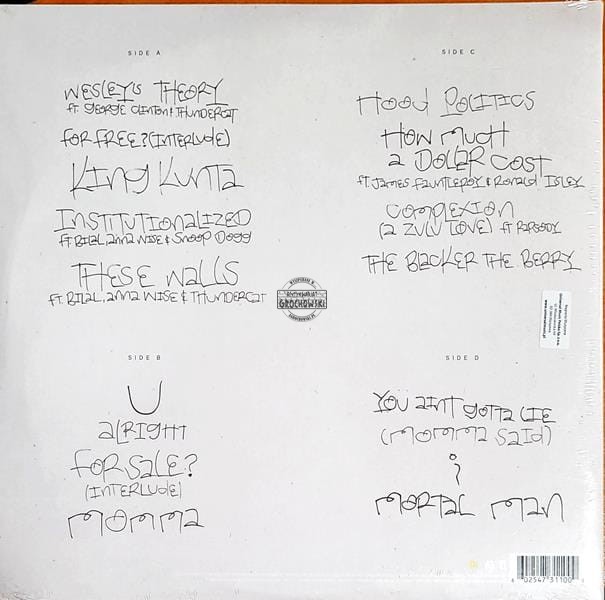 SIDE A
WESLEY'S THEORY
ft. GEORGE CLINTON & THUNDERCAT
FOR FREE? (INTERLUDE)
KING KUNTA
INSTITUTIONALIZED
ft. BILAL, ANNA WISE & SNOOP DOGG
THESE WALLS
ft. BILAL, ANNA WISE & THUNDERCAT
SIDE B
U
ALRIGHT
FOR SALE?
(INTERLUDE)
MOMMA
SIDE C
HOOD POLITICS
HOW MUCH
A DOLLAR COST
ft. JAMES FAUNTLEROY & RONALD ISLEY
COMPLEXION
(A ZULU LOVE) ft RAPSODY
THE BLACKER THE BERRY
GROCHOWSKI
SIDE D
YOU AINT GOTTA LIE
(MOMMA SAID)
i
MORTAL MAN
02547 31100